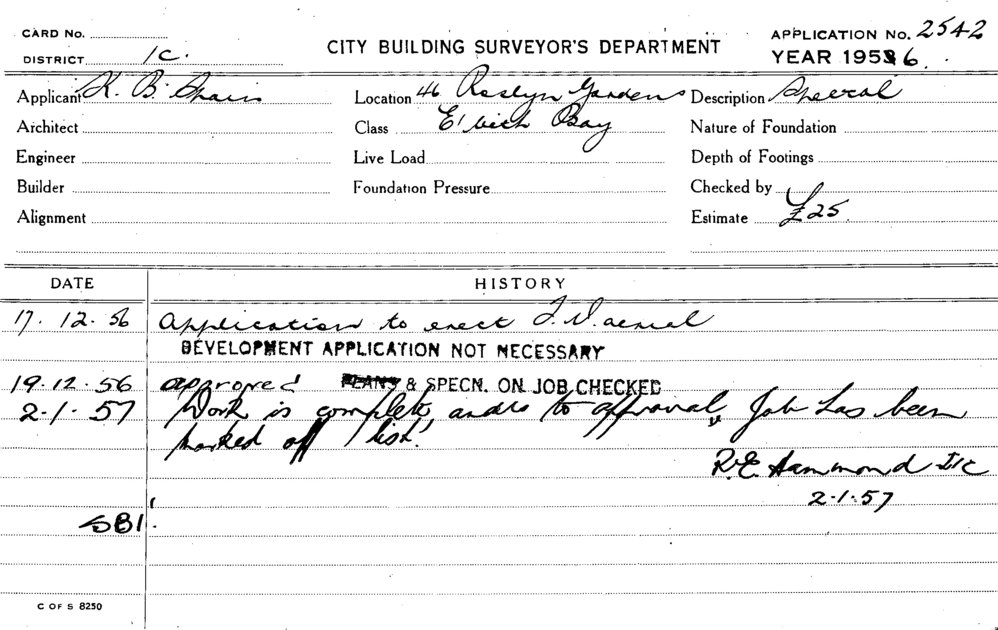 CARD No.
CITY BUILDING SURVEYOR'S DEPARTMENT
APPLICATION No. 2542
DISTRICT 1C.
YEAR 1956.
Applicant K. B.
Location 46 Roslyn Gardens
Description Special
Architect
Class Elizabeth Bay
Nature of Foundation
Engineer
Live Load
Depth of Footings
Builder
Foundation Pressure
Checked by
Alignment
Estimate £25.
DATE HISTORY
17.12.56 Application to erect T.V. aerial
DEVELOPMENT APPLICATION NOT NECESSARY
19.12.56 approved PLANS & SPECN. ON JOB CHECKED
2-1-57 Work is complete and is to approval, Job has been
marked off list.
R.E. Hammond
2-1-57
SB1
C OF S 8250